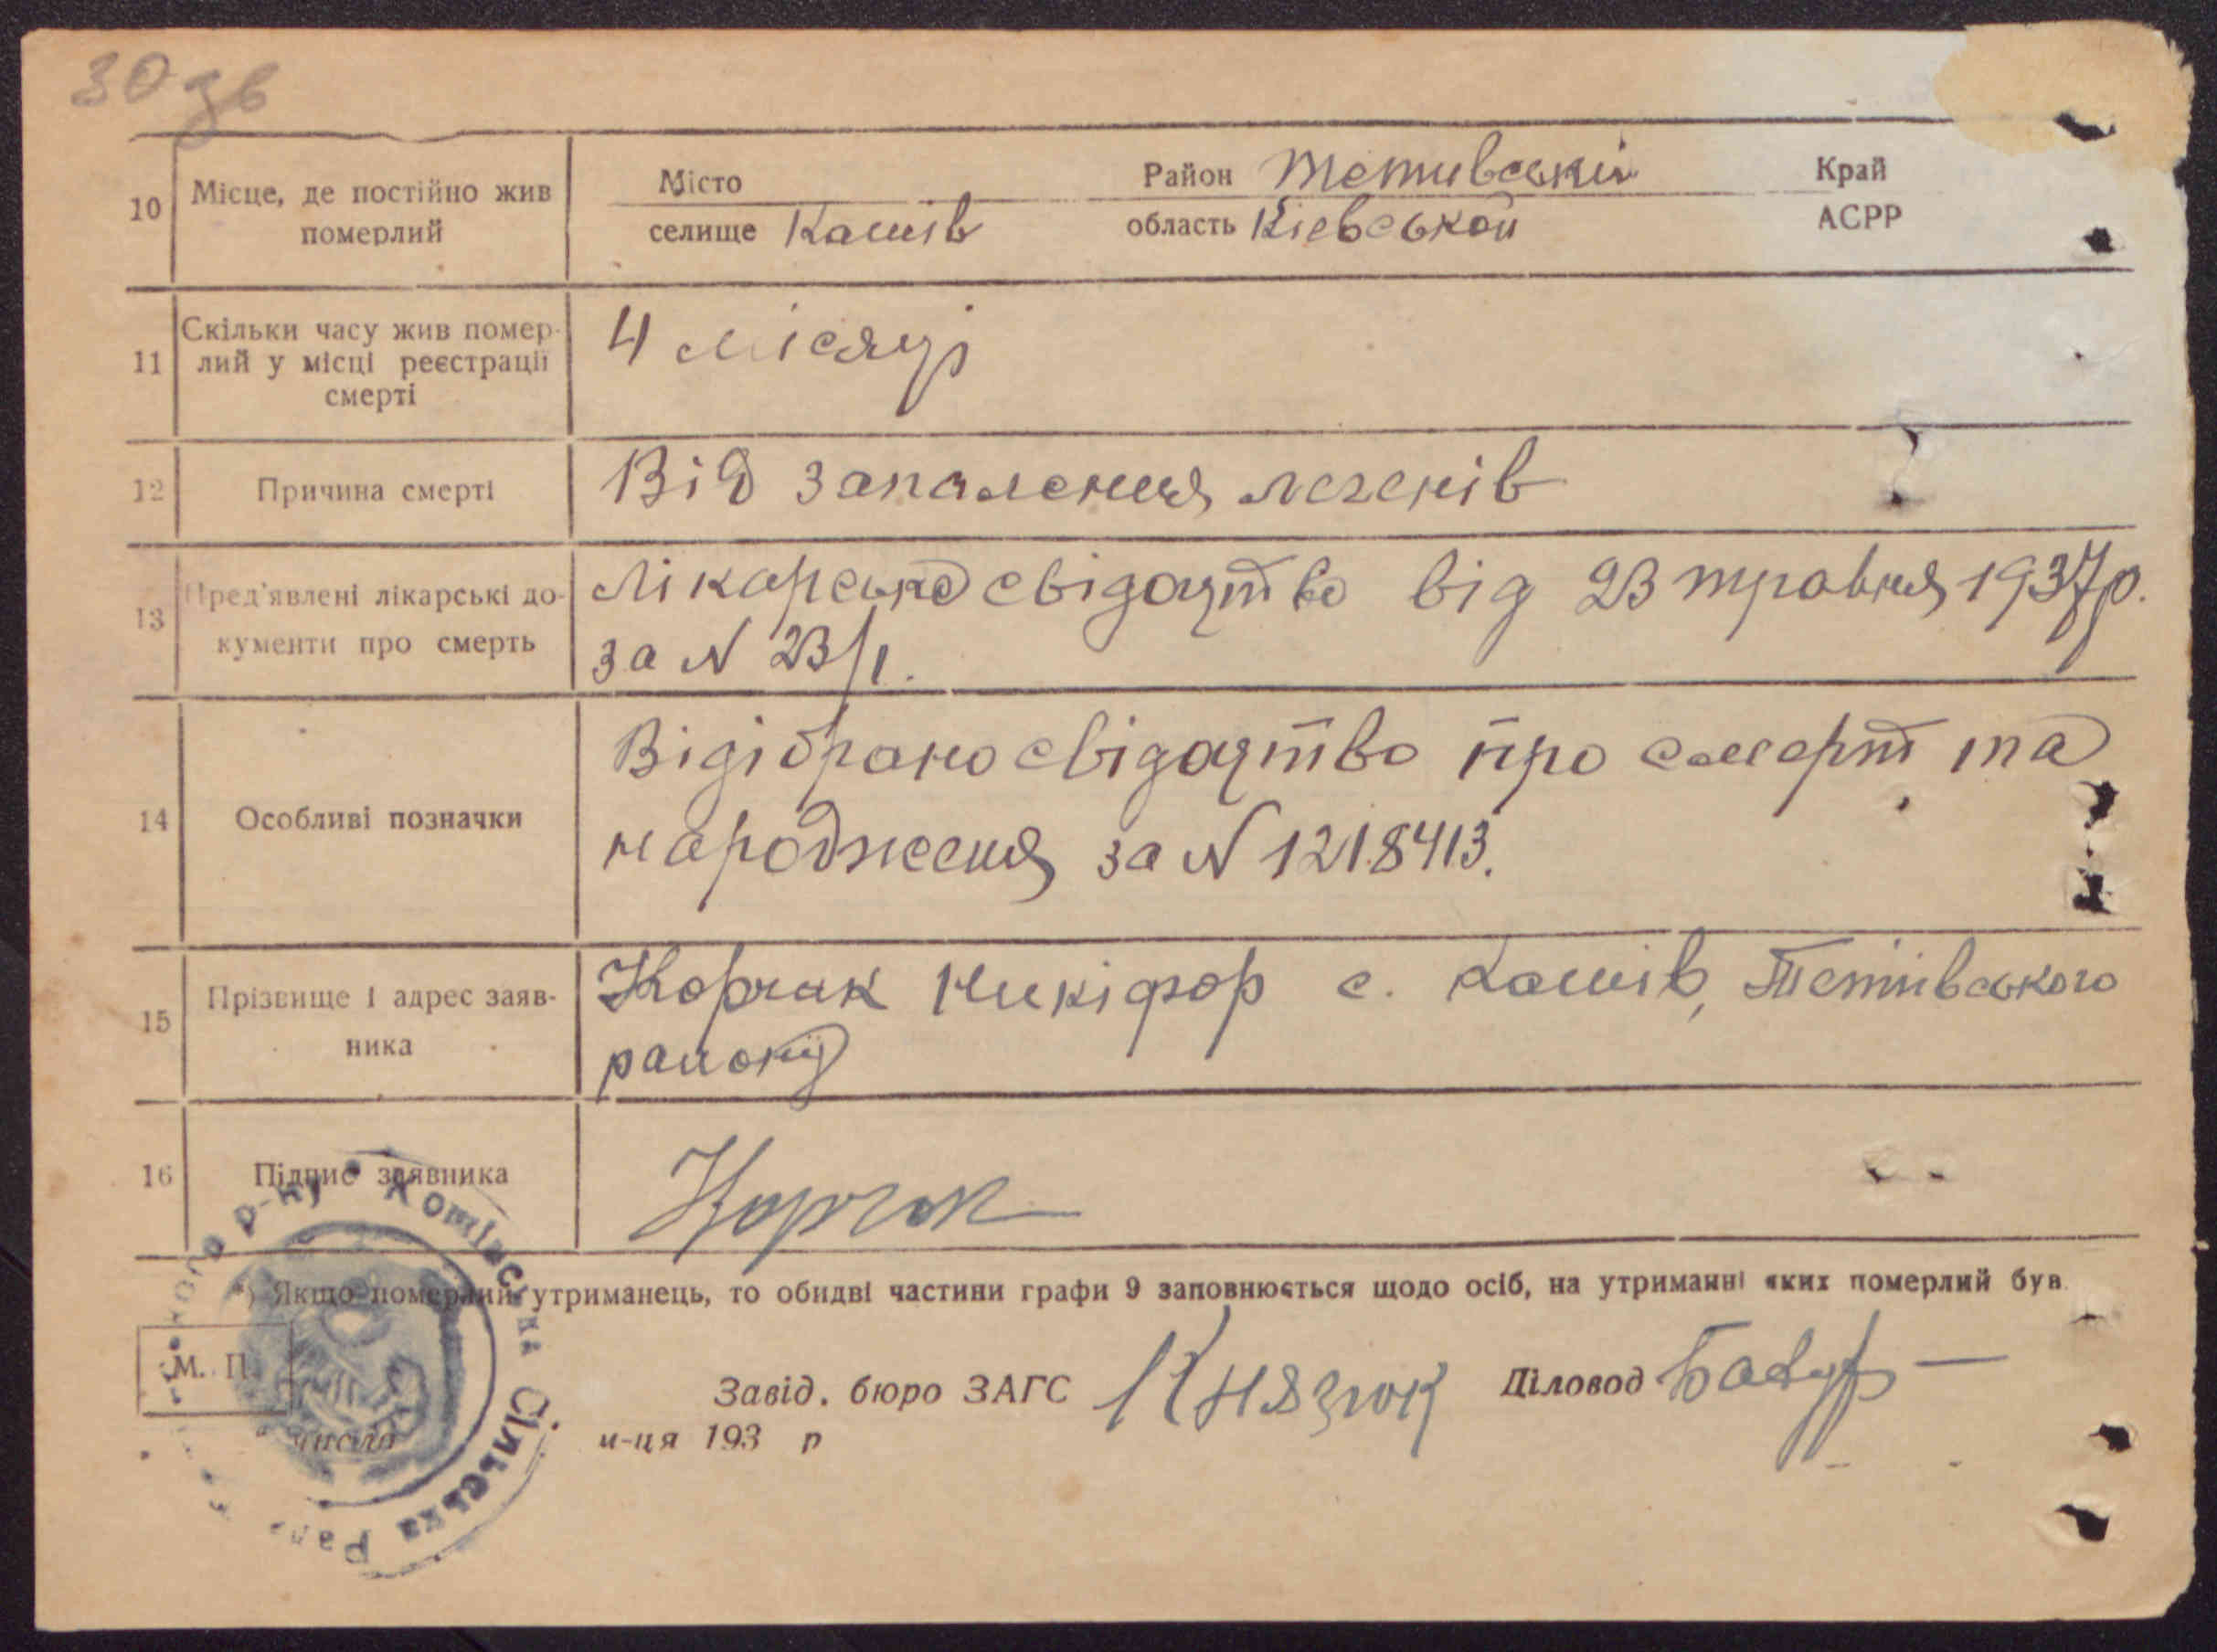 30 зв
10 Місце, де постійно жив померлий
Місто Район Тетивський Край
селище Кашів область Кієвської АСРР
11 Скільки часу жив помер-
лий у місці реєстрації
смерті
4 місяці
12 Причина смерті
Від запалення легенів
13 Пред'явлені лікарські до-
кументи про смерть
Лікарське свідоцтво від 23 травня 1937 р.
за N 23/1.
14 Особливі позначки
Відібрано свідоцтво про смерт та
народження за N 1218413.
15 Прізвище і адрес заяв-
ника
Корчак Никіфор с. Кашів, Тетівського
району
16 Підпис заявника
Корчак
*) Якщо померлий утриманець, то обидві частини графи 9 заповнюється щодо осіб, на утриманні яких померлий був.
М. П.
Завід. бюро ЗАГС Князюк Діловод
" числа м-ця 193 р
р-ну Сільська Рада